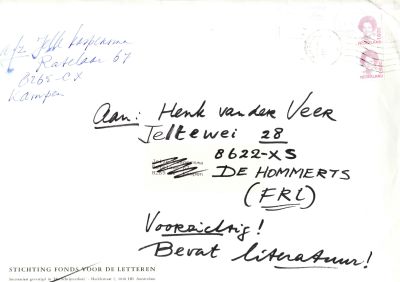 afz Jelle Kaspersma
Ratelaar 67
8265-CX
Kampen
NEDERLAND
NEDERLAND
Aan: Henk van der Veer
Jeltewei 28
8622-XS
DE HOMMERTS
(FRL)
Voorzichtig!
Bevat literatuur!
STICHTING FONDS VOOR DE LETTEREN